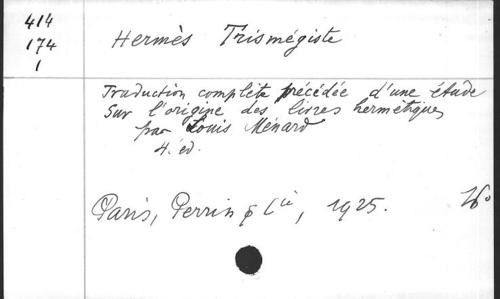 414
174
1
Hermès Trismégiste
Traduction complète précédée d'une étude
sur l'origine des livres hermétiques
par Louis Ménard
4. éd.
Paris, Perrin & Cie, 1925.